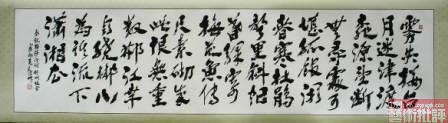 霧失樓台
月迷津渡
桃源望斷
無尋處可
堪孤館閉
春寒杜鵑
聲里斜陽
暮驛寄
梅花魚傳
尺素砌成
此恨無重
數郴江幸
自繞郴山
為誰流下
瀟湘去